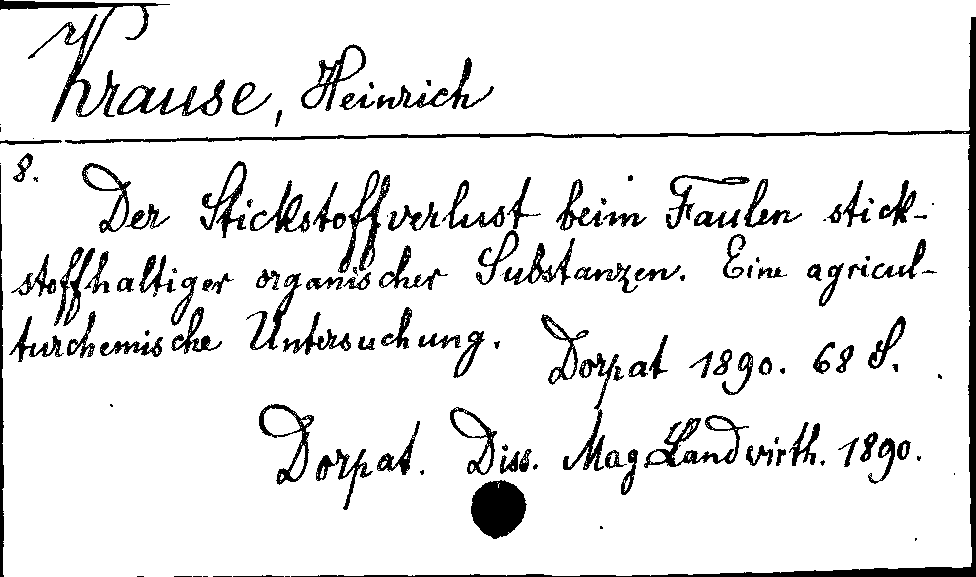 Krause, Heinrich
8.
Der Stickstoffverlust beim Faulen stick-
stoffhaltiger organischer Substanzen. Eine agricul-
turchemische Untersuchung.
Dorpat 1890. 68 S.
Dorpat. Diss. Mag. Landwirth. 1890.